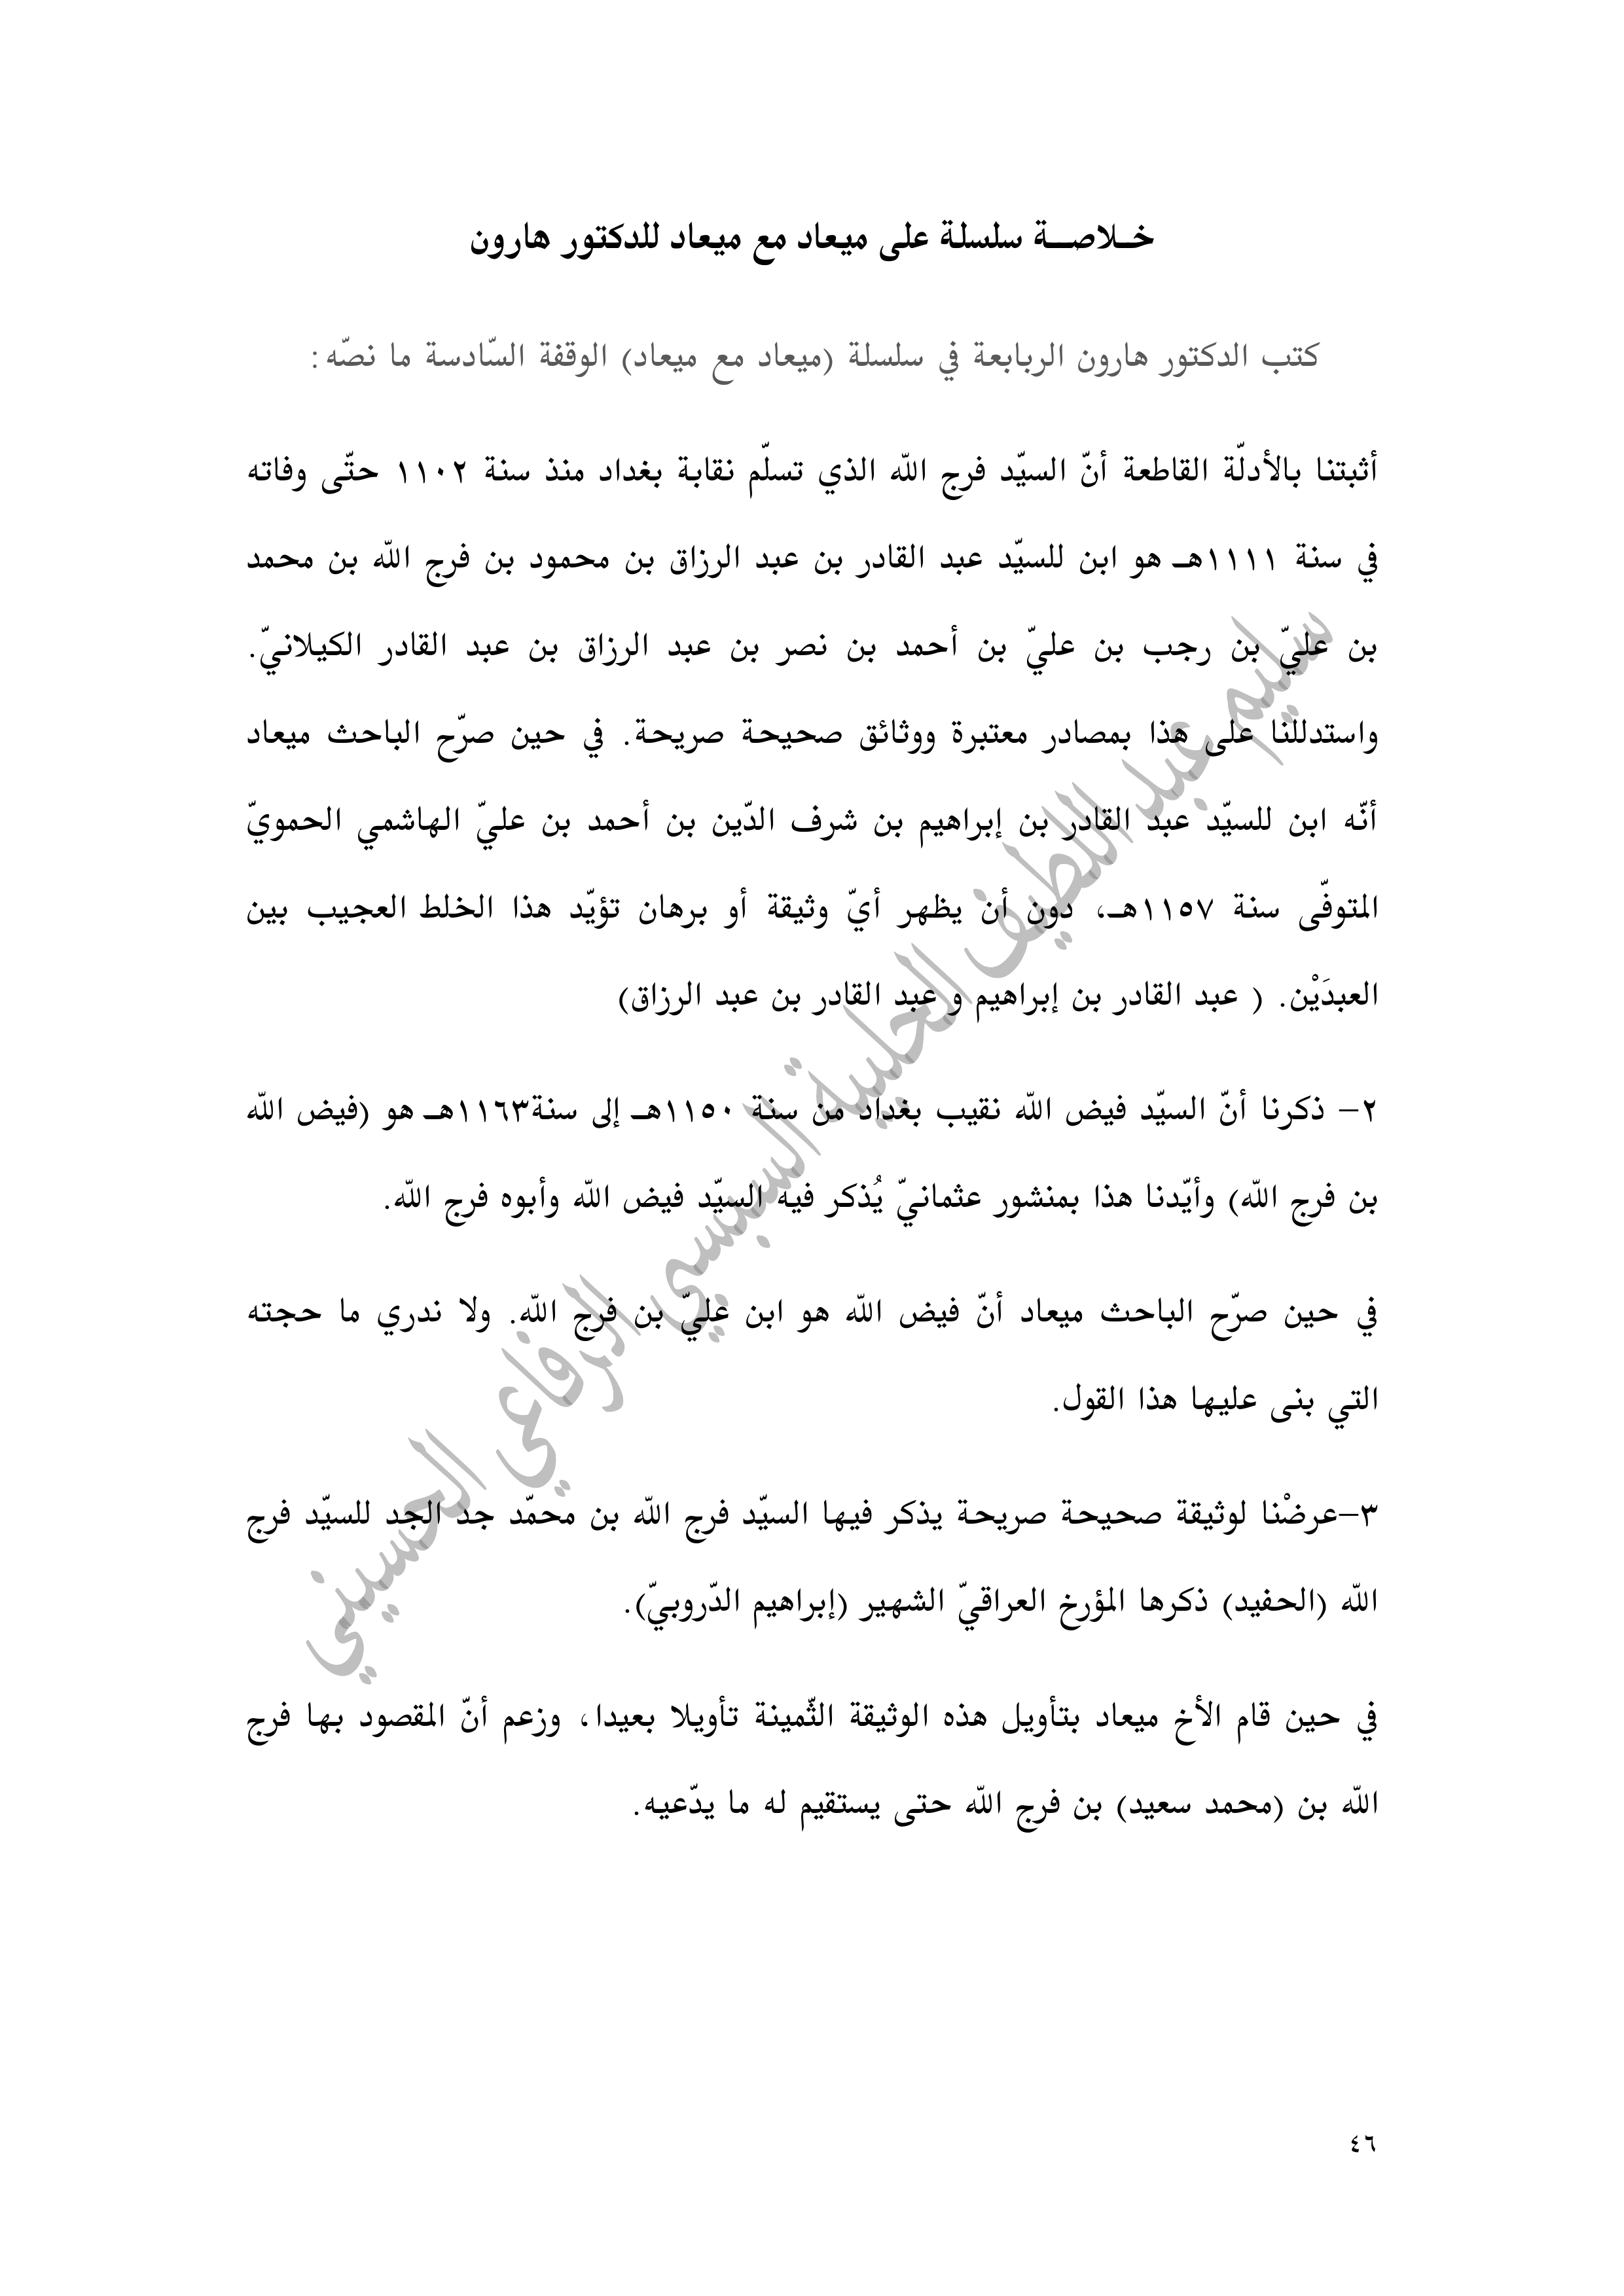 خـلاصـــة سلسلة على ميعاد مع ميعاد للدكتور هارون
كتب الدكتور هارون الربابعة في سلسلة (ميعاد مع ميعاد) الوقفة السّادسة ما نصّه:
أثبتنا بالأدلّة القاطعة أنّ السيّد فرج الله الذي تسلّم نقابة بغداد منذ سنة ١١٠٢ حتّى وفاته
في سنة ١١١١هـ هو ابن للسيّد عبد القادر بن عبد الرزاق بن محمود بن فرج الله بن محمد
بن عليّ بن رجب بن عليّ بن أحمد بن نصر بن عبد الرزاق بن عبد القادر الكيلانيّ.
واستدللنا على هذا بمصادر معتبرة ووثائق صحيحة صريحة. في حين صرّح الباحث ميعاد
أنّه ابن للسيّد عبد القادر بن إبراهيم بن شرف الدّين بن أحمد بن عليّ الهاشمي الحمويّ
المتوفّى سنة ١١٥٧هـ، دون أن يظهر أيّ وثيقة أو برهان تؤيّد هذا الخلط العجيب بين
العبدَيْن. ( عبد القادر بن إبراهيم و عبد القادر بن عبد الرزاق)
٢- ذكرنا أنّ السيّد فيض الله نقيب بغداد من سنة ١١٥٠هـ إلى سنة١١٦٣هـ هو (فيض الله
بن فرج الله) وأيّدنا هذا بمنشور عثمانيّ يُذكر فيه السيّد فيض الله وأبوه فرج الله.
في حين صرّح الباحث ميعاد أنّ فيض الله هو ابن عليّ بن فرج الله. ولا ندري ما حجته
التي بنى عليها هذا القول.
٣-عرضْنا لوثيقة صحيحة صريحة يذكر فيها السيّد فرج الله بن محمّد جد الجد للسيّد فرج
الله (الحفيد) ذكرها المؤرخ العراقيّ الشهير (إبراهيم الدّروبيّ).
في حين قام الأخ ميعاد بتأويل هذه الوثيقة الثّمينة تأويلا بعيدا، وزعم أنّ المقصود بها فرج
الله بن (محمد سعيد) بن فرج الله حتى يستقيم له ما يدّعيه.
سليم عبد اللطيف الحلبية السبسبي الرفاعي الحسيني
٤٦